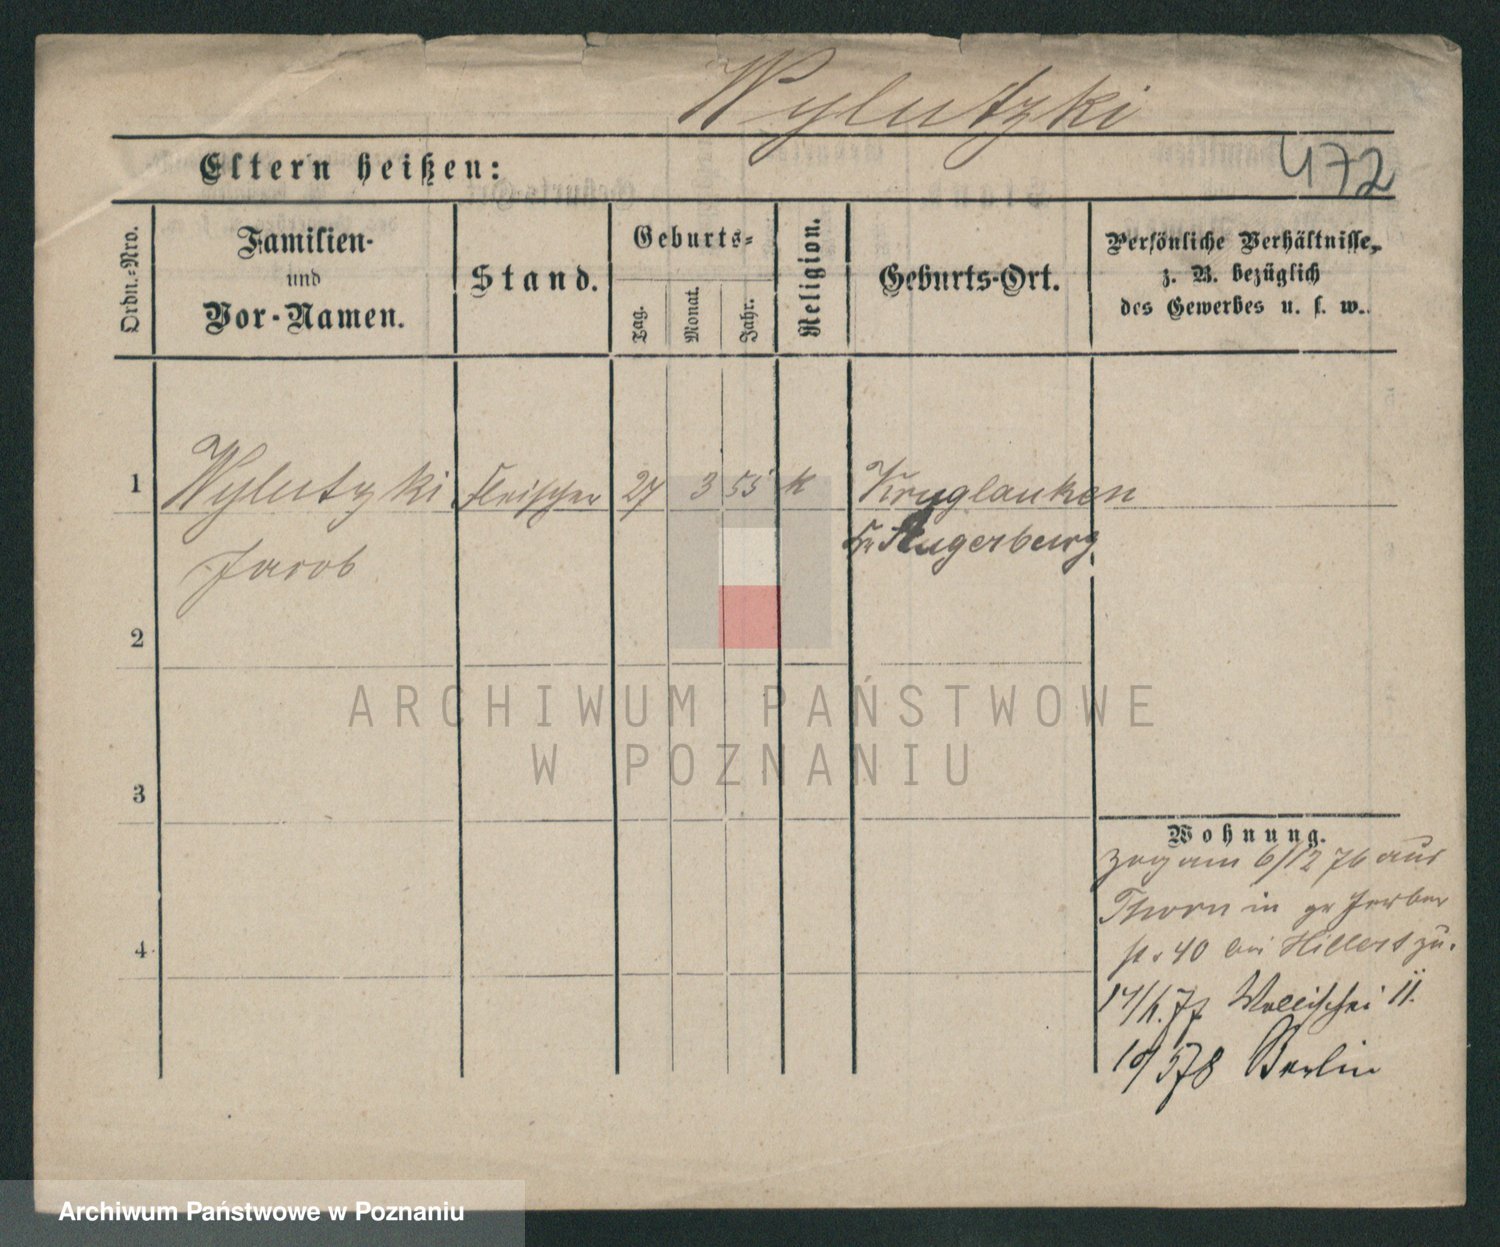 Wylutzki
Eltern heißen:
472
Ordn.-Nro.
Familien-
und
Vor-Namen.
Stand.
Geburts-
Tag.
Monat.
Jahr.
Religion.
Geburts-Ort.
Persönliche Verhältnisse,
z. B. bezüglich
des Gewerbes u. s. w.
1 Wylutzki Fleischer 27 3 55 k Kruglanken
Jacob
Kr Angerburg
2
3
4
ARCHIWUM PAŃSTWOWE
W POZNANIU
Wohnung.
zog am 6/12 76 aus
Thorn in gr Gerber
st. 40 bei Hillert zu.
77 Wallischei 11.
578 Berlin
Archiwum Państwowe w Poznaniu